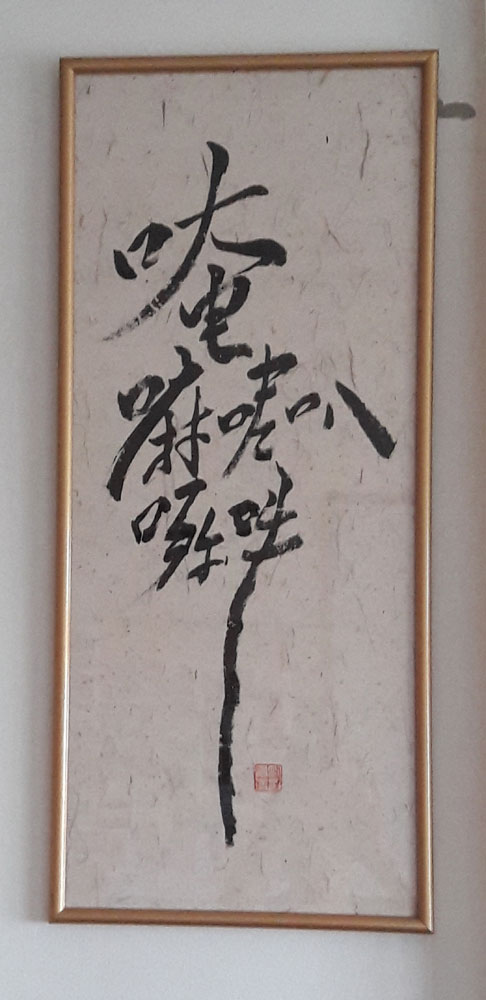 唵
嘛呢叭
吽